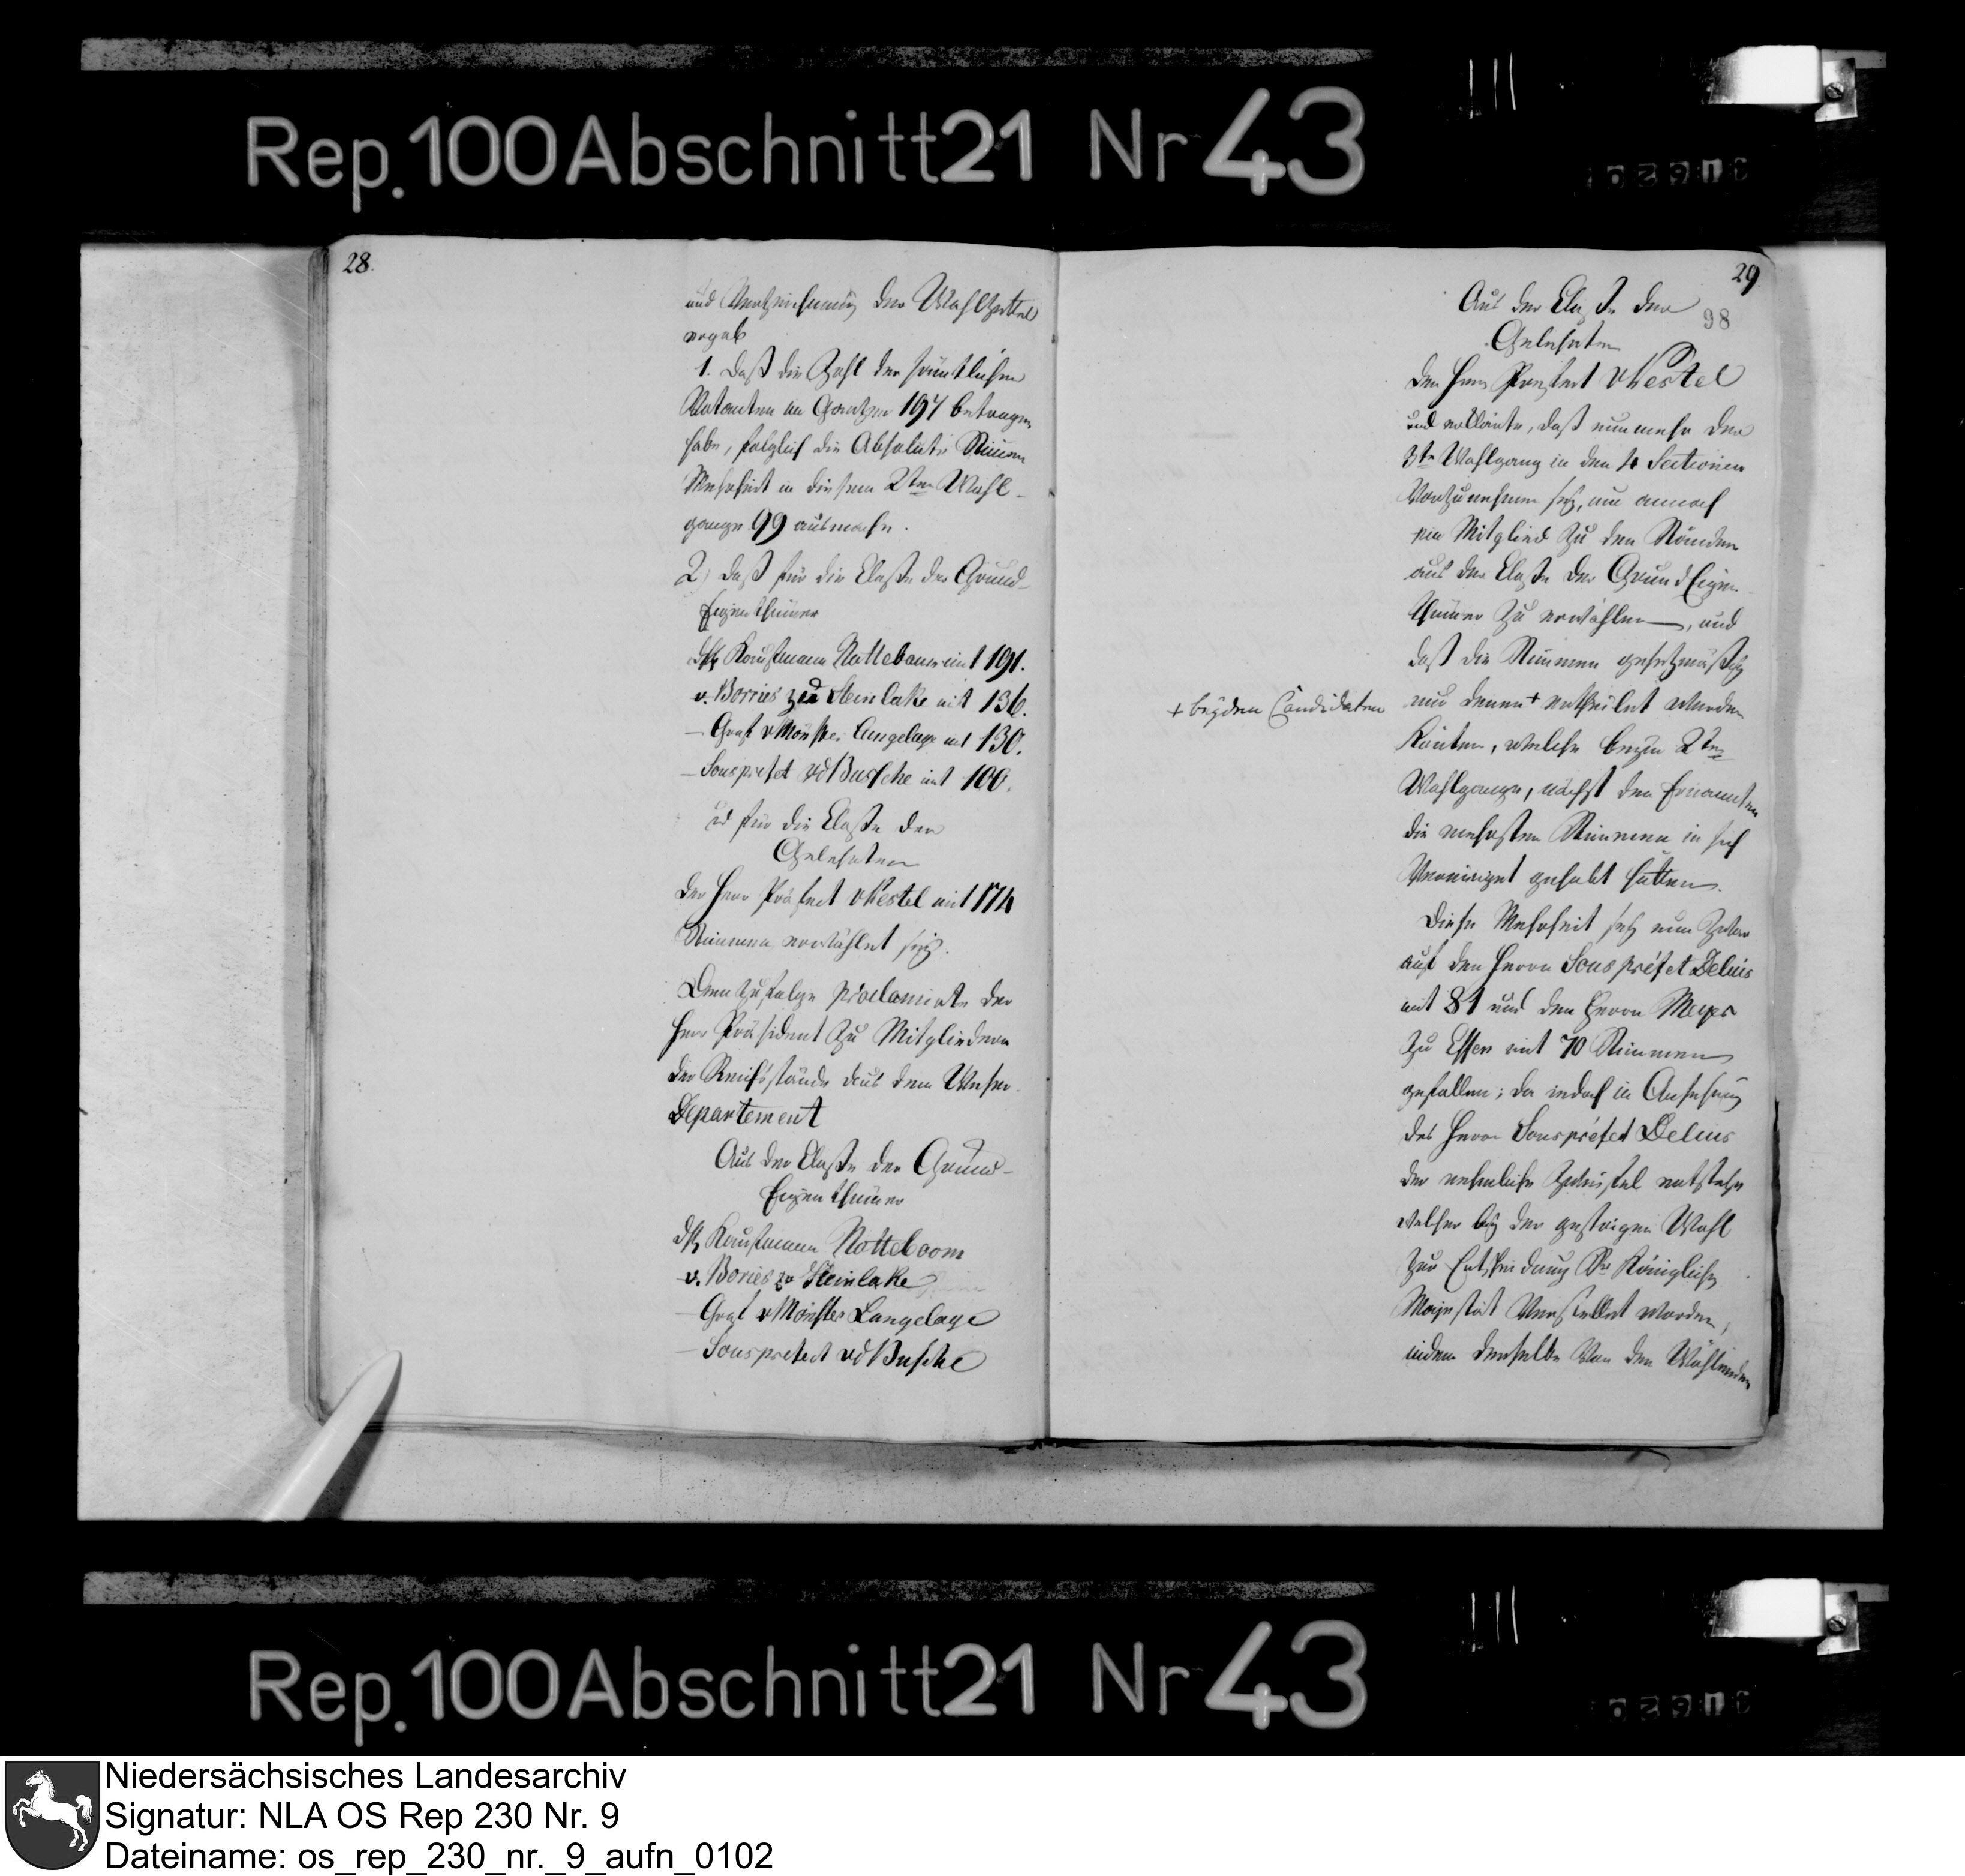 Rep. 100 Abschnitt 21 Nr 43
28
und Verzeichnung der Wahlzettel
ergab
1. daß die Zahl der sämtlichen
Votanten im Gantzen 197 betragen
habe, folglich die Absolute Stimen
Mehrheit in diesem 2ten Wahl-
gange 99 ausmache.
2) daß für die Claße der Grund-
Eigenthümer
Kaufmann Nottebaum mit 191.
v. Borries zu Steinlake mit 136.
— Graf v Münster Langelage mit 130.
— Sousprefet vdBussche mit 100.
und für die Claße der
Gelehrten
der Herr Präfect vPestel mit 174
Stimmen erwählet sey.
Demzufolge proclamirte der
Herr Präsident zu Mitgliedern
der Reichsstände aus dem Weser-
Departement
Aus der Claße der Grund-
Eigenthümer
Kaufmann Notteboom
v. Bories zu Steinlake
— Graf v Münster Langelage
— Sousprefect vdBussche
29
98
Aus der Claße der
Gelehrten
den Herrn Prefect vPestel
und erklärte, daß nunmehr der
3te Wahlgang in den 4 Sectionen
Vorzunehmen sey, um annoch
ein Mitglied zu den Ständen
aus der Claße der GrundEigen-
thümer zu erwählen, und
daß die Stimmen gesetzmäßig
nur denen + ertheilet werden
+ beyden Candidaten
könten, welche beym 2ten
Wahlgange, nächst den Ernannten
die mehrsten Stimmen in sich
Vereiniget gehabt hätten.
Diese Mehrheit sey nun zwar
auf den Herrn Souspréfet Delius
mit 81 und den Herrn Meyer
zu Essen mit 70 Stimmen
gefallen; da indeß in Ansehung
des Herrn Sousprefet Delius
der nehmliche Zweifel entstehe
welcher bey der gestrigen Wahl
zur Entscheidung Sr Königlichen
Majestät Verstellet worden,
indem derselbe Von den Wählenden
Rep. 100 Abschnitt 21 Nr 43
Niedersächsisches Landesarchiv
Signatur: NLA OS Rep 230 Nr. 9
Dateiname: os_rep_230_nr._9_aufn_0102